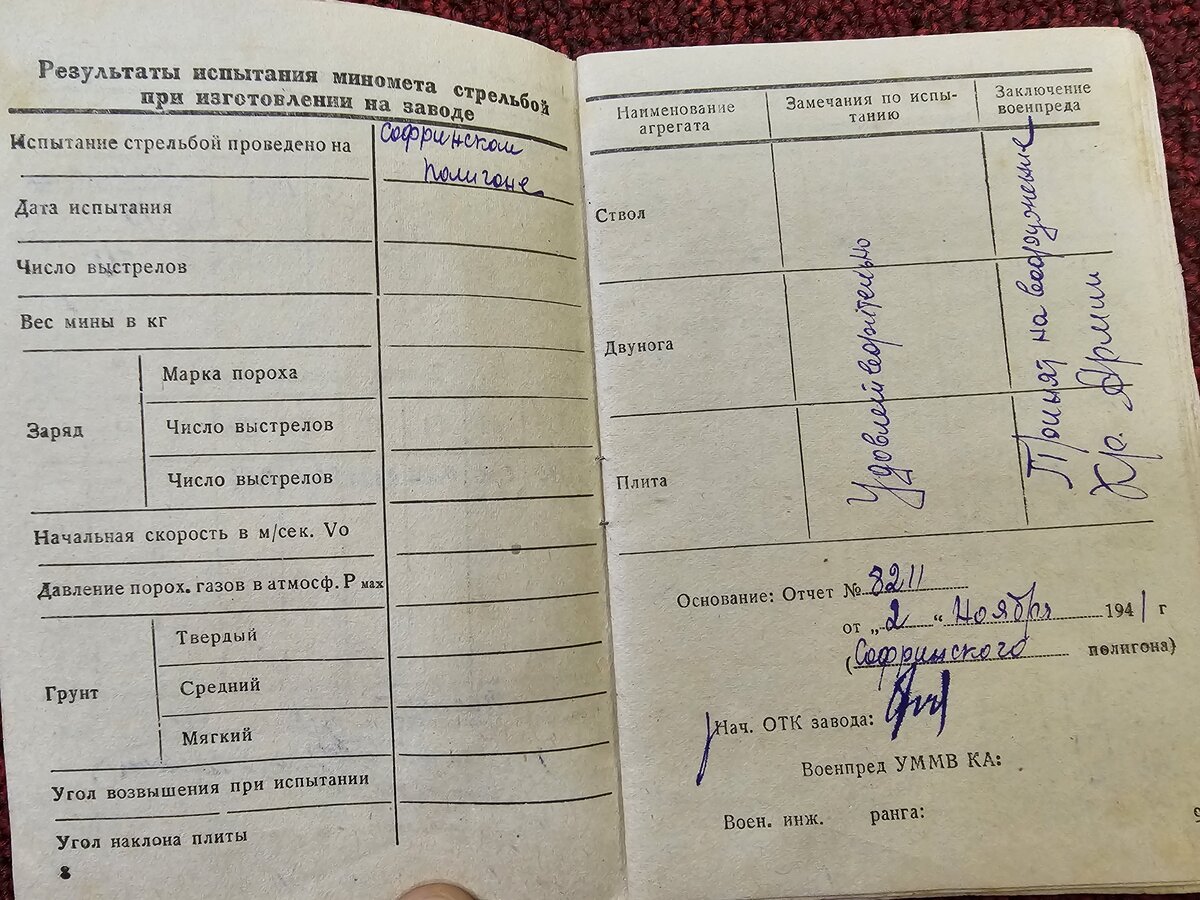 Результаты испытания миномета стрельбой
при изготовлении на заводе
Испытание стрельбой проведено на
Софринском
полигоне
Дата испытания
Число выстрелов
Вес мины в кг
Заряд
Марка пороха
Число выстрелов
Число выстрелов
Начальная скорость в м/сек. Vо
Давление порох. газов в атмосф. P мах
Грунт
Твердый
Средний
Мягкий
Угол возвышения при испытании
Угол наклона плиты
8
Наименование
агрегата
Замечания по испы-
танию
Заключение
военпреда
Ствол
Двунога
Плита
Удовлетворительно
Принят на вооружение
Кр. Армии
Основание: Отчет № 8211
от „ 2 “ Ноября 1941 г
(Софринского полигона)
Нач. ОТК завода:
Военпред УММВ КА:
Воен. инж. ранга:
9